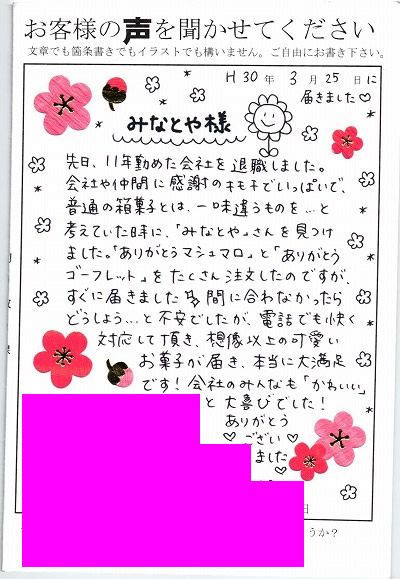 お客様の声を聞かせてください
文章でも箇条書きでもイラストでも構いません。ご自由にお書き下さい。
H 30 年 3 月 25 日 に
届きました♡
みなとや様
先日、11年勤めた会社を退職しました。
会社や仲間に感謝のキモチでいっぱいで、
普通の箱菓子とは、一味違うものを…と
考えていた時に、「みなとや」さんを見つけ
ました。「ありがとうマシュマロ」と「ありがとう
ゴーフレット」をたくさん注文したのですが、
すぐに届きました 間に合わなかったら
どうしよう…と不安でしたが、電話でも快く
対応して頂き、想像以上の可愛い
お菓子が届き、本当に大満足
です！会社のみんなも「かわいい」
と大喜びでした！
ありがとう
♡ござい♡
ました
日
うか？